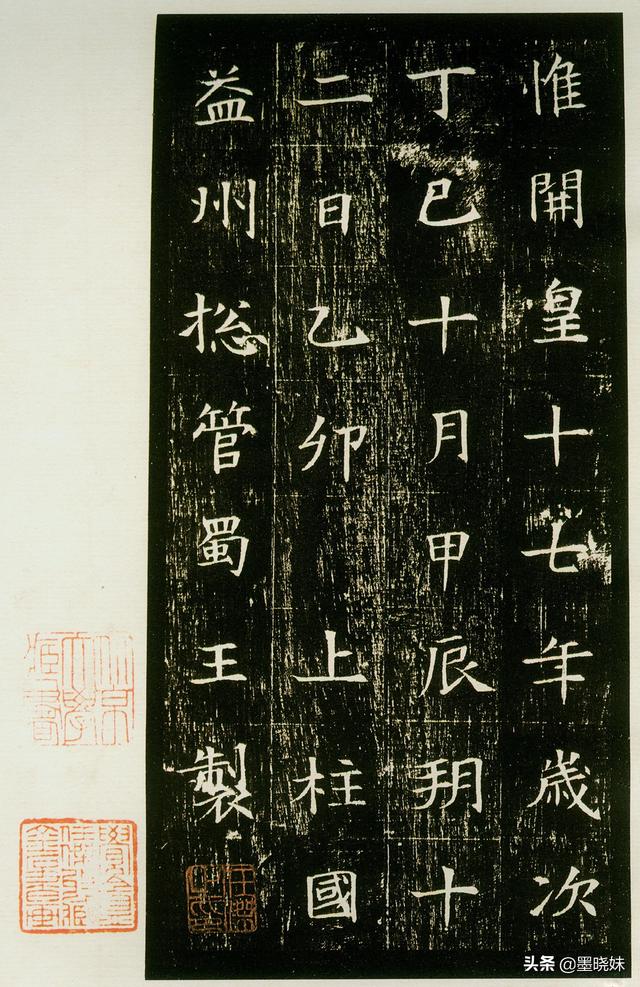 惟開皇十七年歳次
丁巳十月甲辰朔十
二日乙卯 上柱國
益州揔管蜀王製
头条 @墨晓妹